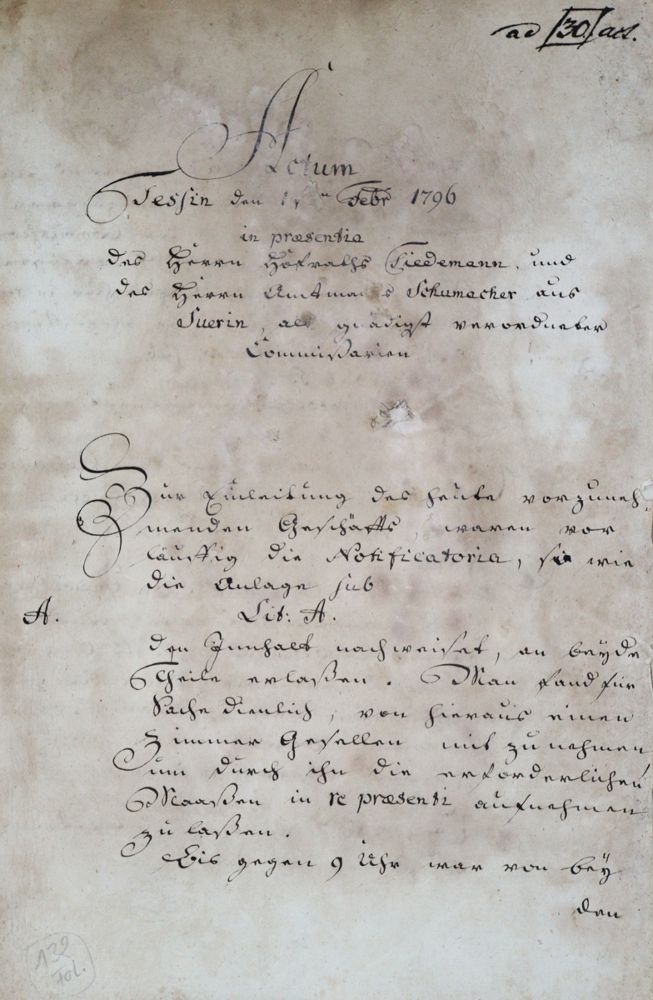 ad 30 act.
Actum
Tessin den Febr 1796
in præsentia
des Herrn Hofraths Tiedemann, und
des Herrn Amtmanns Schumacher aus
Suerin, als gnädigst verordneter
Commißarien
Zur Einleitung des heute vorzuneh
menden Geschäffts, waren vor
läuffig die Notificatoria, so wie
die Anlage sub
A. Lit: A.
den Innhalt nachweiset, an beyde
Theile erlaßen. Man fand für
Sache dienlich, von hieraus einen
Zimmer Gesellen mit zu nehmen
um durch ihn die erforderlichen
Maaßen in re præsenti aufnehmen
zu laßen.
Bis gegen 9 Uhr war von bey
den
132
Fol.